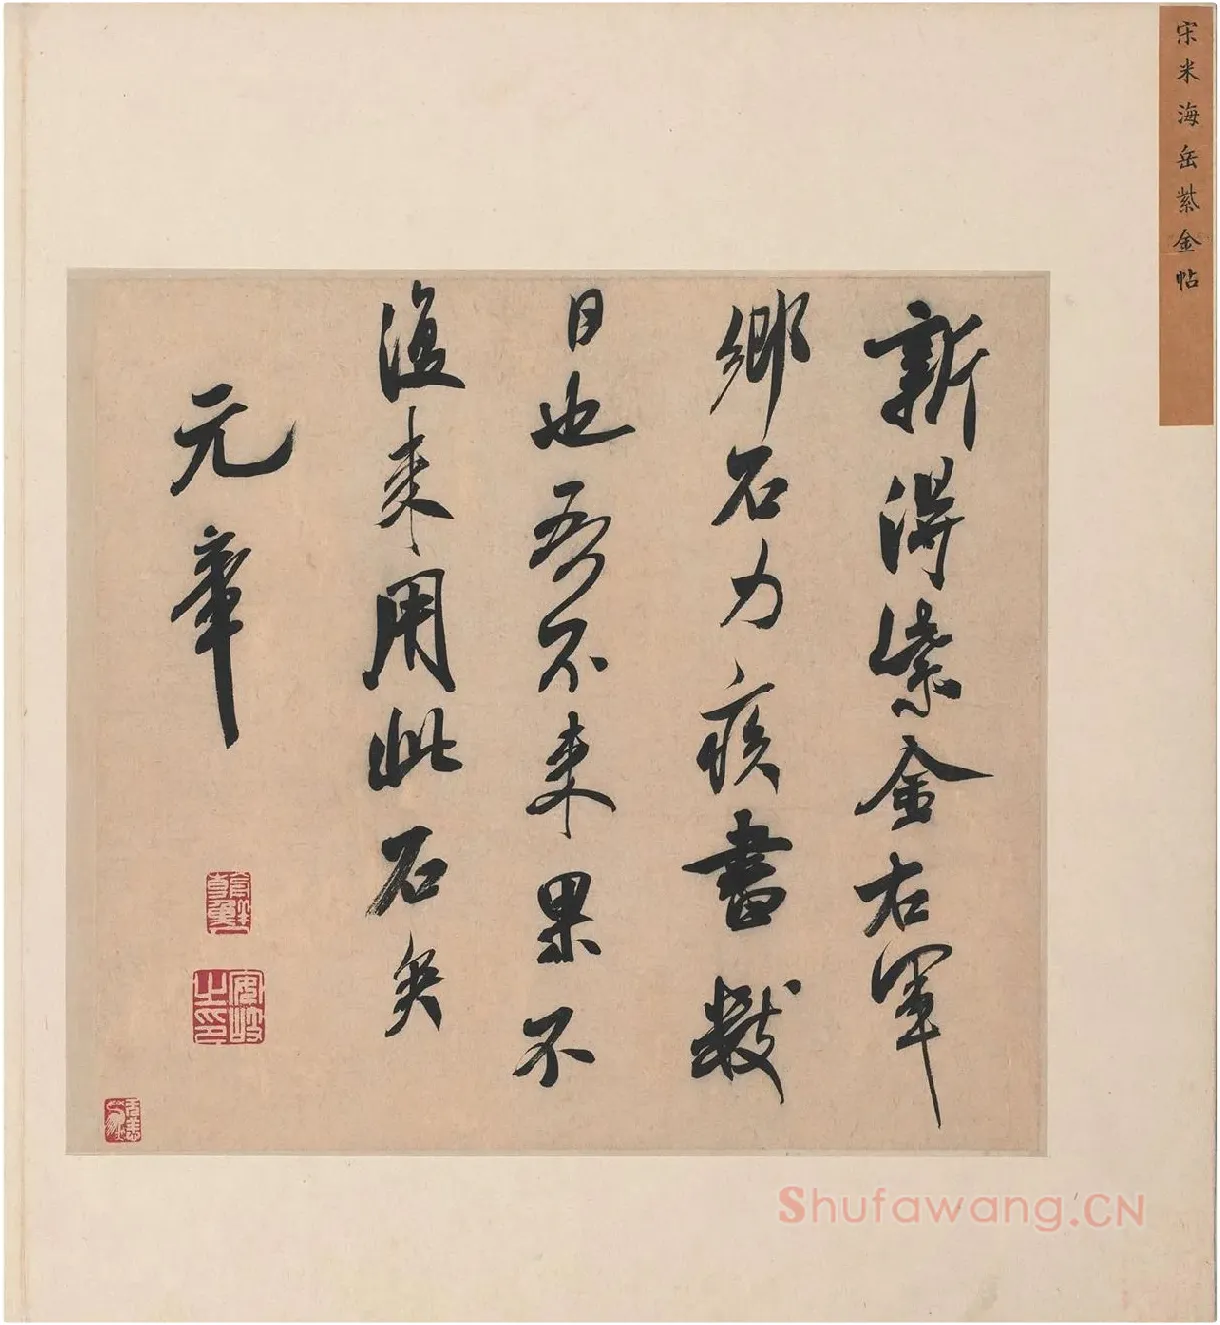 宋米海岳紫金帖
新得紫金右軍
鄉石力疾書數
日也吾不來果不
復来用此石矣
元章
Shufawang.CN